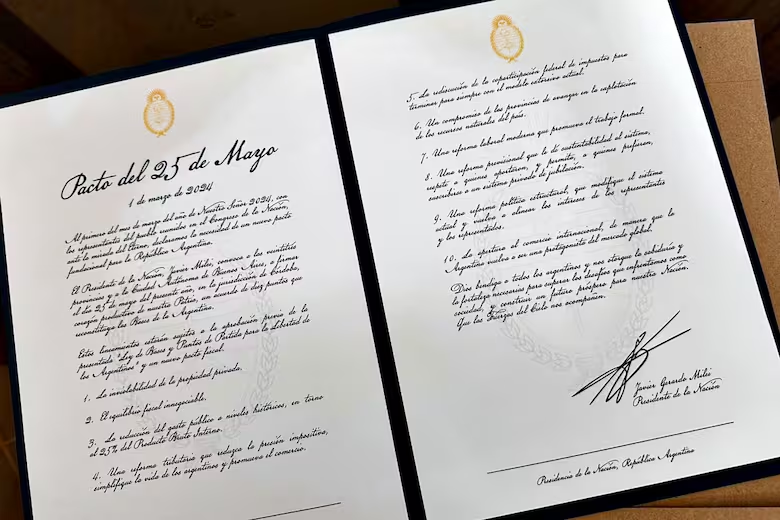 Pacto del 25 de Mayo
1 de marzo de 2024
Al primero del mes de marzo del año de Nuestro Señor 2024, con
los representantes del pueblo reunidos en el Congreso de la Nación,
ante la mirada del Eterno, declaramos la necesidad de un nuevo pacto
fundacional para la República Argentina.
El Presidente de la Nación, Javier Milei, convoca a las veintitrés
provincias y a la Ciudad Autónoma de Buenos Aires, a firmar
el día 25 de mayo del presente año, en la jurisdicción de Córdoba,
corazón productivo de nuestra Patria, un acuerdo de diez puntos que
reconstituya las Bases de la Argentina.
Estos lineamientos estarán sujetos a la aprobación previa de la
presentada "Ley de Bases y Puntos de Partida para la libertad de
los Argentinos" y un nuevo pacto fiscal.
1. La inviolabilidad de la propiedad privada.
2. El equilibrio fiscal innegociable.
3. La reducción del gasto público a niveles históricos, en torno
al 25% del Producto Bruto Interno.
4. Una reforma tributaria que reduzca la presión impositiva,
simplifique la vida de los argentinos y promueva el comercio.
5. La rediscusión de la coparticipación federal de impuestos para
terminar para siempre con el modelo extorsivo actual.
6. Un compromiso de las provincias de avanzar en la explotación
de los recursos naturales del país.
7. Una reforma laboral moderna que promueva el trabajo formal.
8. Una reforma previsional que le dé sustentabilidad al sistema,
respete a quienes aportaron, y permita, a quienes prefieran,
suscribirse a un sistema privado de jubilación.
9. Una reforma política estructural, que modifique el sistema
actual y vuelva a alinear los intereses de los representantes
y los representados.
10. La apertura al comercio internacional, de manera que la
Argentina vuelva a ser una protagonista del mercado global.
Dios bendiga a todos los argentinos y nos otorgue la sabiduría y
la fortaleza necesarias para superar los desafíos que enfrentamos como
sociedad, y construir un futuro próspero para nuestra Nación.
Que las Fuerzas del Cielo nos acompañen.
Javier Gerardo Milei
Presidente de la Nación
Presidencia de la Nación, República Argentina